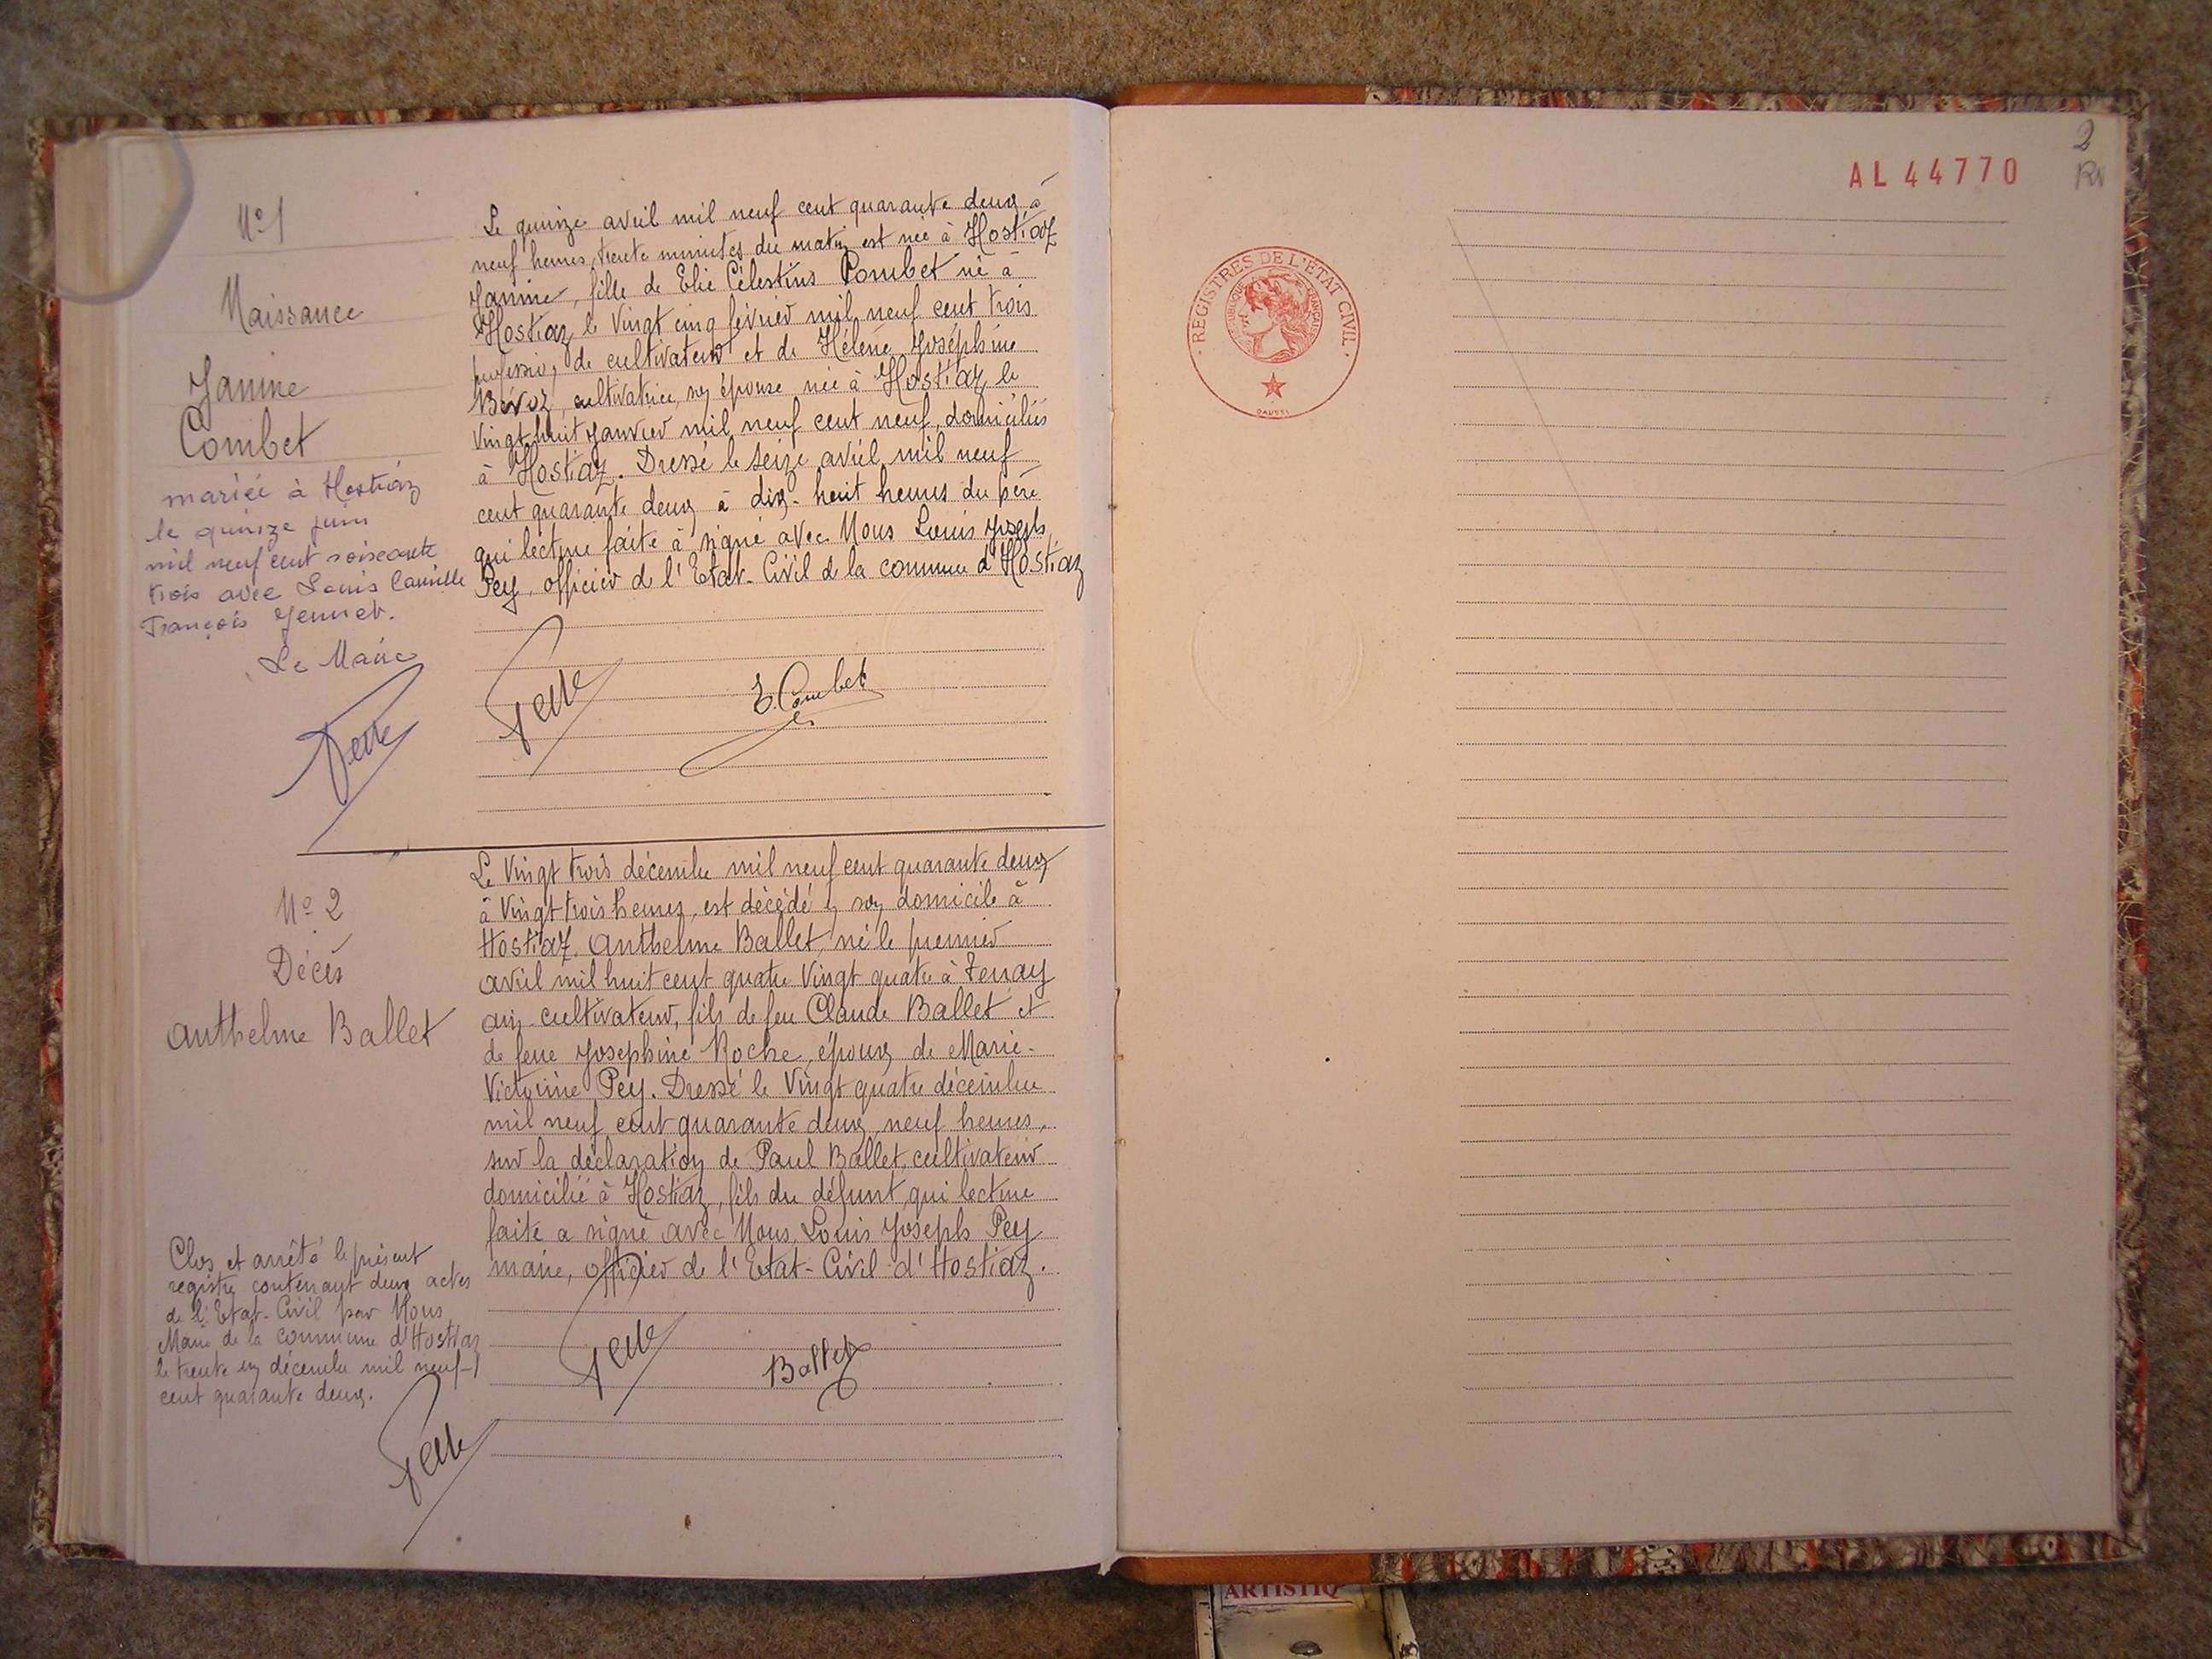 Nº1
Naissance
Janine
Combet
mariée à Hostiaz
le quinze juin
mil neuf cent soixante
trois avec Louis Camille
François Jennet.
Le Maire
Le quinze avril mil neuf cent quarante deux à
neuf heures, trente minutes du matin est née à Hostiaz
Janine, fille de Elie Célestins Combet né à
Hostiaz le Vingt cinq février mil neuf cent trois
profession de cultivateur et de Hélène Joséphine
cultivatrice, son épouse née à Hostiaz le
Vingt huit Janvier mil neuf cent neuf, domiciliés
à Hostiaz. Dressé le seize avril mil neuf
cent quarante deux à dix-huit heures du père
qui lecture faite à signé avec Nous Louis Joseph
Pey, officier de l'Etat-Civil de la commune d'Hostiaz
E. Combet
Nº 2
Décès
Anthelme Ballet
Le Vingt trois décembre mil neuf cent quarante deux
à Vingt trois heures, est décédé en son domicile à
Hostiaz. Anthelme Ballet, né le premier
avril mil huit cent quatre Vingt quatre à Tenay
Ain cultivateur, fils de feu Claude Ballet et
de feue Josephine Roche, époux de Marie-
Victorine Pey. Dressé le Vingt quatre décembre
mil neuf cent quarante deux, neuf heures,
sur la déclaration de Paul Ballet, cultivateur
domicilié à Hostiaz, fils du défunt, qui lecture
faite a signé avec Nous, Louis Joseph Pey
maire, officier de l'Etat-Civil d'Hostiaz.
Ballet
Clos et arrêté le présent
registre contenant deux actes
de l'Etat-Civil par Nous
Maire de la commune d'Hostiaz
le trente un décembre mil neuf-
cent quarante deux.
2
AL 44770
REGISTRES DE L'ETAT CIVIL
REPUBLIQUE FRANÇAISE
ARTISTIQ